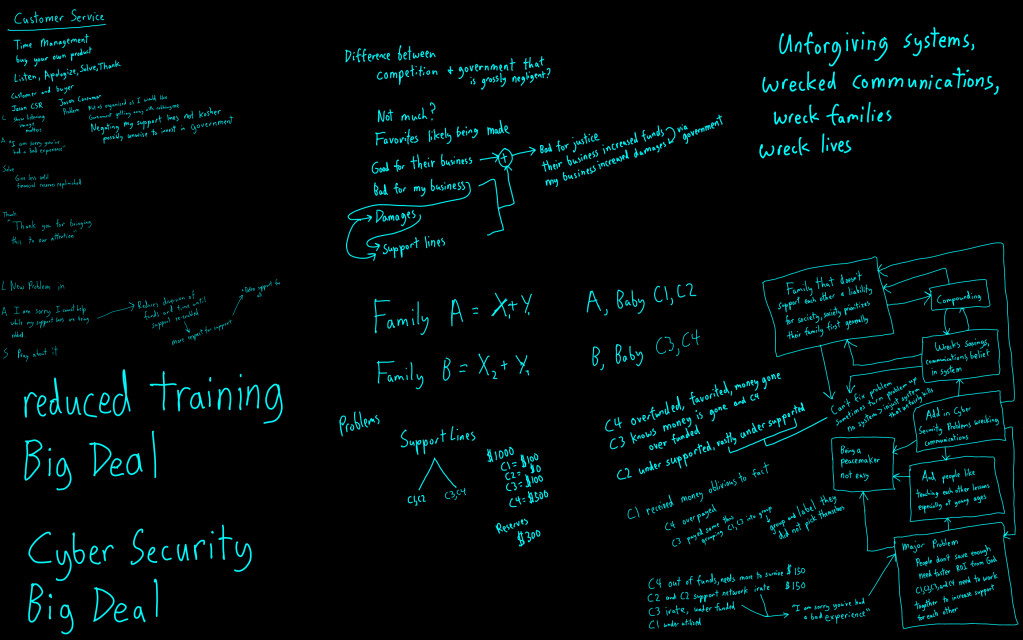 Customer Service
Time Management
buy your own product
Listen, Apologize, Solve, Thank
Customer and buyer
Jason CSR
Jason Consumer
Problem
Not as organized as I would like
Government getting away with
Negating my support lines not kosher
possibly unwise to invest in government
"I am sorry you've
had a bad experience"
Solve
Thank
"Thank you for bringing
this to our attention"
L New Problem in
A I am sorry I cannot help
while my support lines are being
robbed
Reduces diversion of
funds and time until
support
more respect for support
S Pray about it
reduced training
Big Deal
Cyber Security
Big Deal
Difference between
competition + government that
is grossly negligent?
Not much?
Favorites likely being made
Good for their business
Bad for my business
Damages
Support lines
+
Bad for justice
their business increased funds
my business increased damages
via
government
Unforgiving systems,
wrecked communications,
wreck families
wreck lives
Family A = X1 + Y1
A, Baby C1, C2
Family B = X2 + Y2
B, Baby C3, C4
Problems
Support Lines
C1, C2
C3, C4
$1000
C1 = $100
C2 = $0
C3 = $100
C4 = $500
Reserves
$300
C4 overfunded, favorited, money gone
C3 knows money is gone and C4
over funded
C2 under supported, vastly under supported
C1 received money oblivious to fact
C4 overpayed
C3 payed same thus
grouping C1, C3 into group
group and label they
did not pick themselves
C4 out of funds, needs more to survive $150
C2 and C2 support network irate $150
C3 irate, under funded
C1 under utilized
"I am sorry you've had
a bad experience"
Family that doesn't
support each other a liability
for society, society practices
their family first generally
Compounding
Wrecks Savings,
communications, belief
in system
Can't fix problem
sometimes turn problem up
no system > unjust system
that unfairly kills
Add in Cyber
Security Problems wrecking
communications
Being a
peacemaker
not easy
And, people like
teaching each other lessons
especially at young ages
Major Problem
People don't save enough
need faster ROI from God
C1, C2, C3, and C4 need to work
together to increase support
for each other